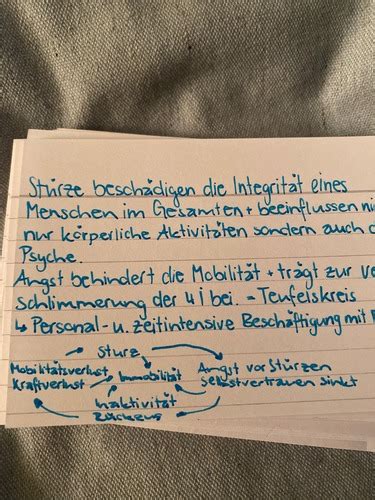 Stürze beschädigen die Integrität eines
Menschen im Gesamten + beeinflussen ni
nur körperliche Aktivitäten sondern auch d
Psyche.
Angst behindert die Mobilität + trägt zur Ve
schlimmerung der UI bei. = Teufelskreis
↳ Personal- u. zeitintensive Beschäftigung mit
Sturz
Mobilitätsverlust
Kraftverlust
Immobilität
Angst vor Stürzen
Selbstvertrauen sinkt
Inaktivität
Rückzug